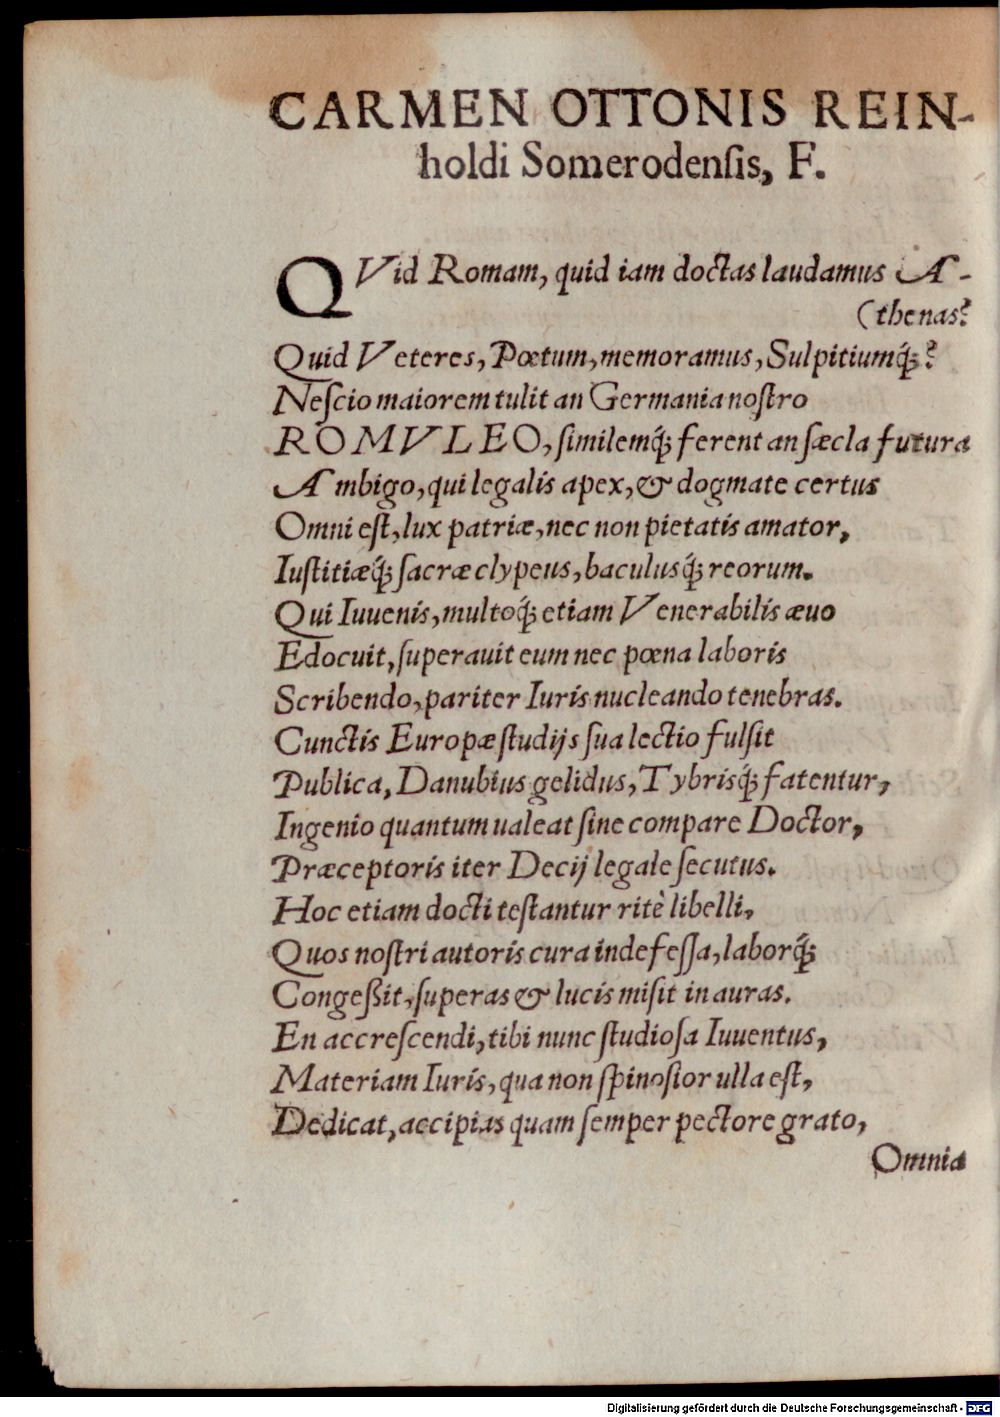 CARMEN OTTONIS REIN-
holdi Somerodenſis, F.
QVid Romam, quid iam doctas laudamus A-
(thenas?
Quid Veteres, Pœtum, memoramus, Sulpitiumq́;?
Neſcio maiorem tulit an Germania noſtro
ROMVLEO, ſimilemq́; ferent an ſæcla futura
Ambigo, qui legalis apex, & dogmate certus
Omni eſt, lux patriæ, nec non pietatis amator,
Iuſtitiæq́; ſacræ clypeus, baculusq́; reorum.
Qui Iuuenis, multoq́; etiam Venerabilis æuo
Edocuit, ſuperauit eum nec pœna laboris
Scribendo, pariter Iuris nucleando tenebras.
Cunctis Europæ ſtudijs ſua lectio fulſit
Publica, Danubius gelidus, Tybrisq́; fatentur,
Ingenio quantum ualeat ſine compare Doctor,
Præceptoris iter Decij legale ſecutus.
Hoc etiam docti teſtantur ritè libelli,
Quos noſtri autoris cura indefeſſa, laborq́;
Congeßit, ſuperas & lucis miſit in auras.
En accreſcendi, tibi nunc ſtudioſa Iuuentus,
Materiam Iuris, qua non ſpinoſior ulla eſt,
Dedicat, accipias quam ſemper pectore grato,
Omnia
Digitalisierung gefördert durch die Deutsche Forschungsgemeinschaft - DFG